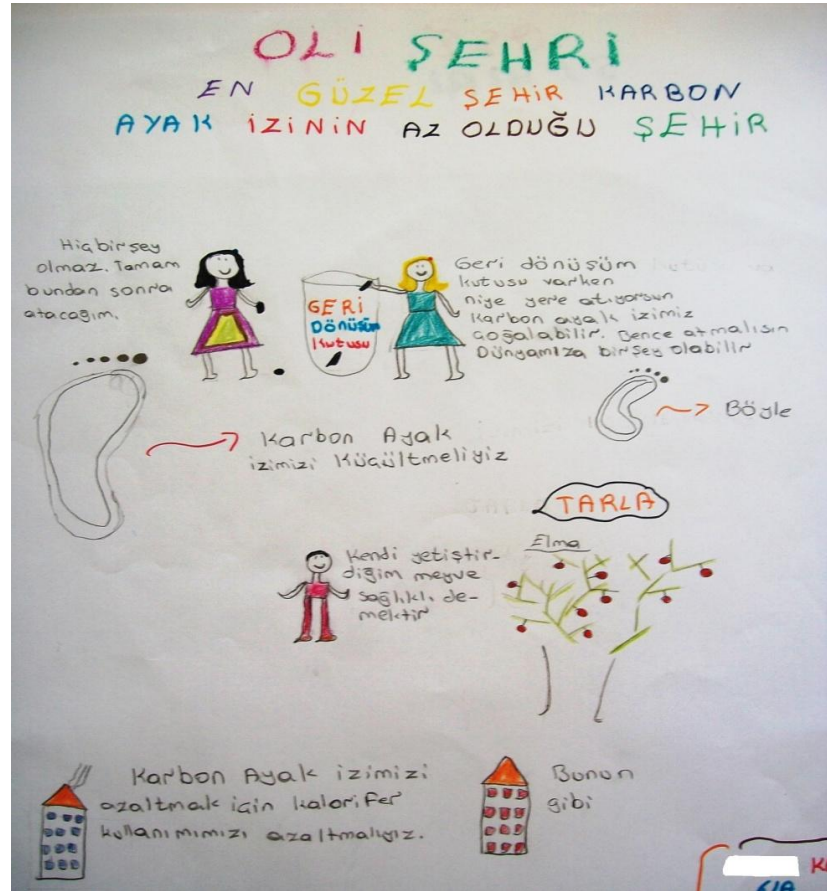 OLİ ŞEHRİ
EN GÜZEL ŞEHİR KARBON
AYAK İZİNİN AZ OLDUĞU ŞEHİR
Hiçbirşey
olmaz. Tamam
bundan sonra
atacağım.
GERİ
Dönüşüm
kutusu
Geri dönüşüm
kutusu varken
niye yere atıyorsun
Karbon ayak izimiz
çoğalabilir. Bence atmalısın
Dünyamıza birşey olabilir
Karbon Ayak
izimizi Küçültmeliyiz
Böyle
TARLA
Elma
Kendi yetiştir-
diğim meyve
sağlıklı de-
mektir
Karbon Ayak izimizi
azaltmak için kalorifer
kullanımımızı azaltmalıyız.
Bunun
gibi